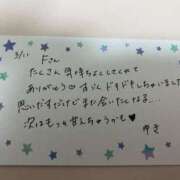 3/11 Fさん
たくさん気持ちよくしてくれて
ありがとう♡すごくドキドキしちゃいました
思いだすだけでまた会いたくなる…
次はもっと甘えちゃうかも♥
ゆき